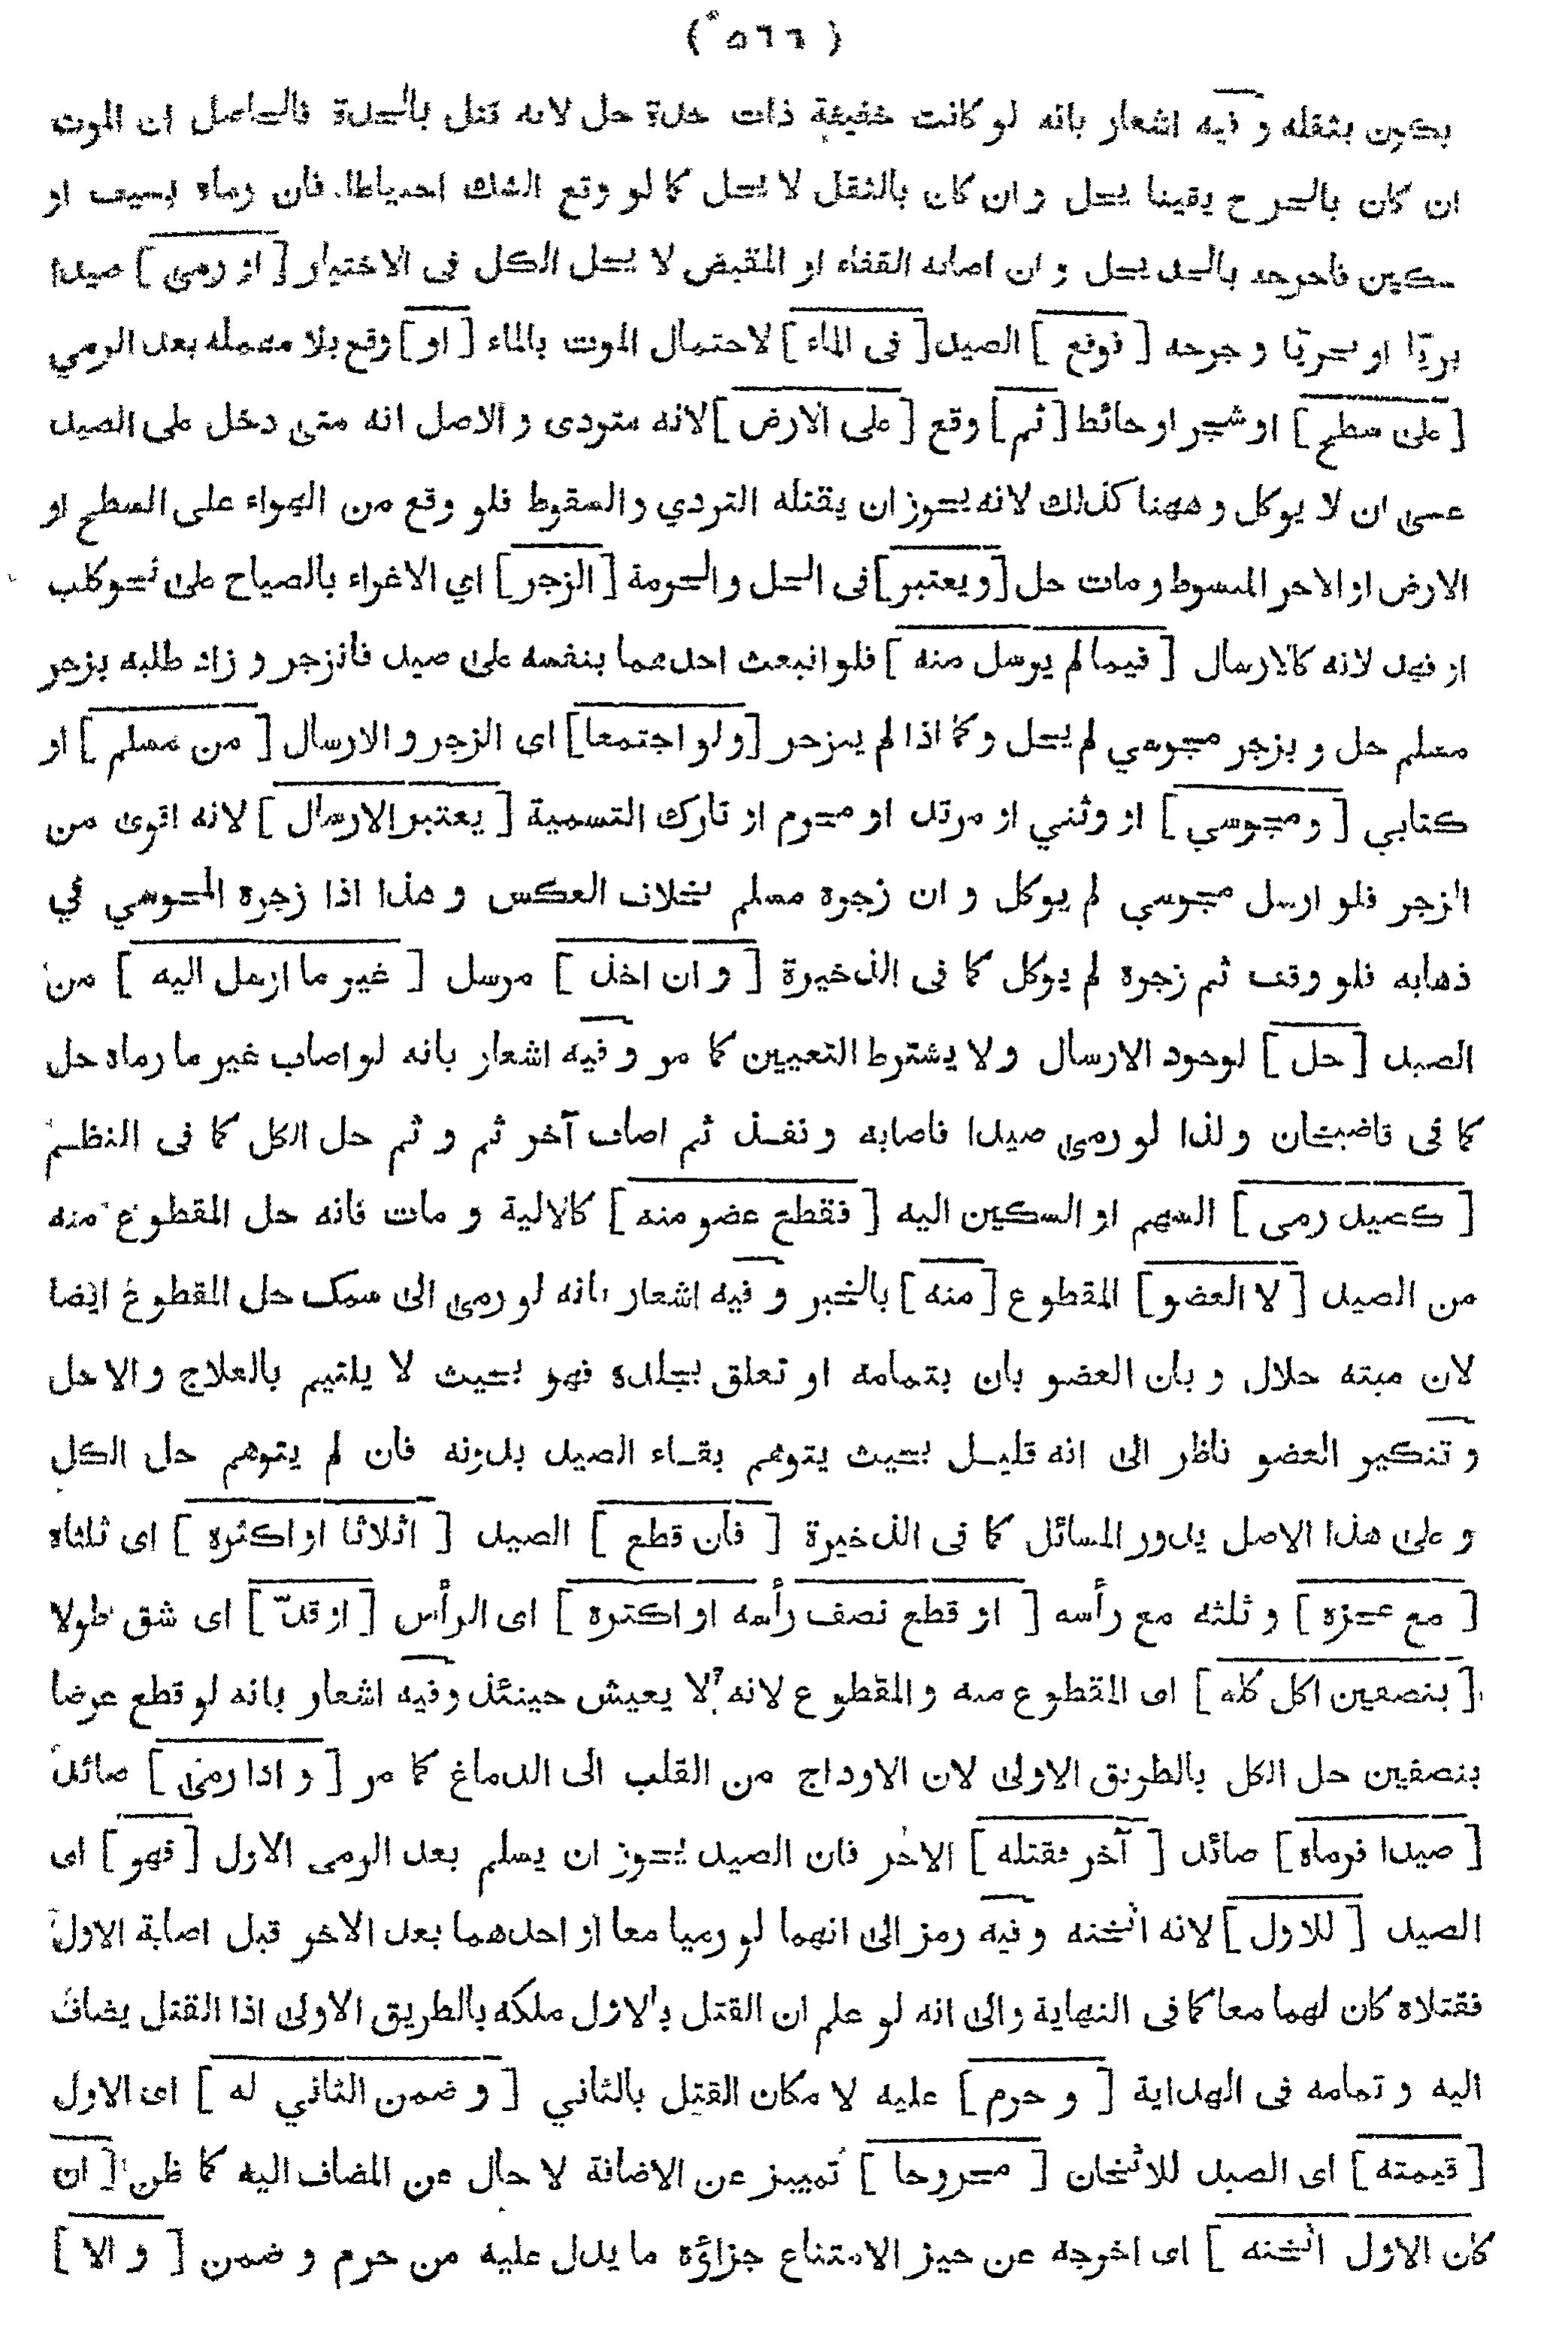 ( ٥٦٦ )
يكون بثقله و فيه اشعار بانه لو كانت خفيفة ذات حدة حل لانه قتل بالحدة فالحاصل ان الموت
ان كان بالجرح يقينا يحل و ان كان بالثقل لا يحل كما لو وقع الشك احتياطا. فان رماه بسيف او
سكين فاجرحه بالحد يحل و ان اصابه القفاء او المقبض لا يحل الكل فى الاختيار [ او رمى ] صيدا
بريّا او بحريّا و جرحه [ فوقع ] الصيد [ فى الماء ] لاحتمال الموت بالماء [ او ] وقع بلا مهملة بعد الرمي
[ على سطح ] او شجر او حائط [ ثم ] وقع [ على الارض ] لانه متردى و الاصل انه متى دخل على الصيد
عسى ان لا يوكل و ههنا كذلك لانه يجوز ان يقتله التردي والسقوط فلو وقع من الهواء على السطح او
الارض او الاجر المبسوط و مات حل [ و يعتبر ] فى الحل والحرمة [ الزجر ] اي الاغراء بالصياح على نحو كلب
او فهد لانه كالارسال [ فيما لم يرسل منه ] فلو انبعث احدهما بنفسه على صيد فانزجر و زاد طلبه بزجر
مسلم حل و بزجر مجوسي لم يحل و كما اذا لم ينزجر [ ولو اجتمعا ] اى الزجر و الارسال [ من مسلم ] او
كتابي [ و مجوسي ] او وثني او مرتد او محرم او تارك التسمية [ يعتبر الارسال ] لانه اقوى من
الزجر فلو ارسل مجوسي لم يوكل و ان زجره مسلم بخلاف العكس و هذا اذا زجره المجوسي في
ذهابه فلو وقف ثم زجره لم يوكل كما فى الذخيرة [ و ان اخذ ] مرسل [ غير ما ارسل اليه ] من
الصيد [ حل ] لوجود الارسال ولا يشترط التعيين كما مر و فيه اشعار بانه لو اصاب غير ما رماه حل
كما فى قاضيخان و لذا لو رمى صيدا فاصابه و نفذ ثم اصاب آخر ثم و ثم حل الكل كما فى النظم
[ كصيد رمى ] السهم او السكين اليه [ فقطع عضو منه ] كالالية و مات فانه حل المقطوع منه
من الصيد [ لا العضو ] المقطوع [ منه ] بالخبر و فيه اشعار بانه لو رمى الى سمك حل المقطوع ايضا
لان ميته حلال و بان العضو بان بتمامه او تعلق بجلده فهو بحيث لا يلتيم بالعلاج و الا حل
و تنكير العضو ناظر الى انه قليل بحيث يتوهم بقاء الصيد بدونه فان لم يتوهم حل الكل
و على هذا الاصل يدور المسائل كما فى الذخيرة [ فان قطع ] الصيد [ اثلاثا او اكثره ] اى ثلثاه
[ مع عجزه ] و ثلثه مع رأسه [ او قطع نصف رأسه او اكثره ] اى الرأس [ او قدّ ] اى شق طولا
[ بنصفين اكل كله ] اى المقطوع منه و المقطوع لانه لا يعيش حينئذ و فيه اشعار بانه لو قطع عرضا
بنصفين حل الكل بالطريق الاولى لان الاوداج من القلب الى الدماغ كما مر [ و اذا رمى ] صائد
[ صيدا فرماه ] صائد [ آخر فقتله ] الاخر فان الصيد يجوز ان يسلم بعد الرمى الاول [ فهو ] اى
الصيد [ للاول ] لانه اثخنه و فيه رمز الى انهما لو رميا معا او احدهما بعد الاخر قبل اصابة الاول
فقتلاه كان لهما معا كما فى النهاية والى انه لو علم ان القتل بالاول ملكه بالطريق الاولى اذا القتل يضاف
اليه و تمامه فى الهداية [ و حرم ] عليه لا مكان القتل بالثاني [ و ضمن الثاني له ] اى الاول
[ قيمته ] اى الصيد للاثخان [ مجروحا ] تمييز عن الاضافة لا حال عن المضاف اليه كما ظن [ ان
كان الاول اثخنه ] اى اخرجه عن حيز الامتناع جزاؤه ما يدل عليه من حرم و ضمن [ و الا ]